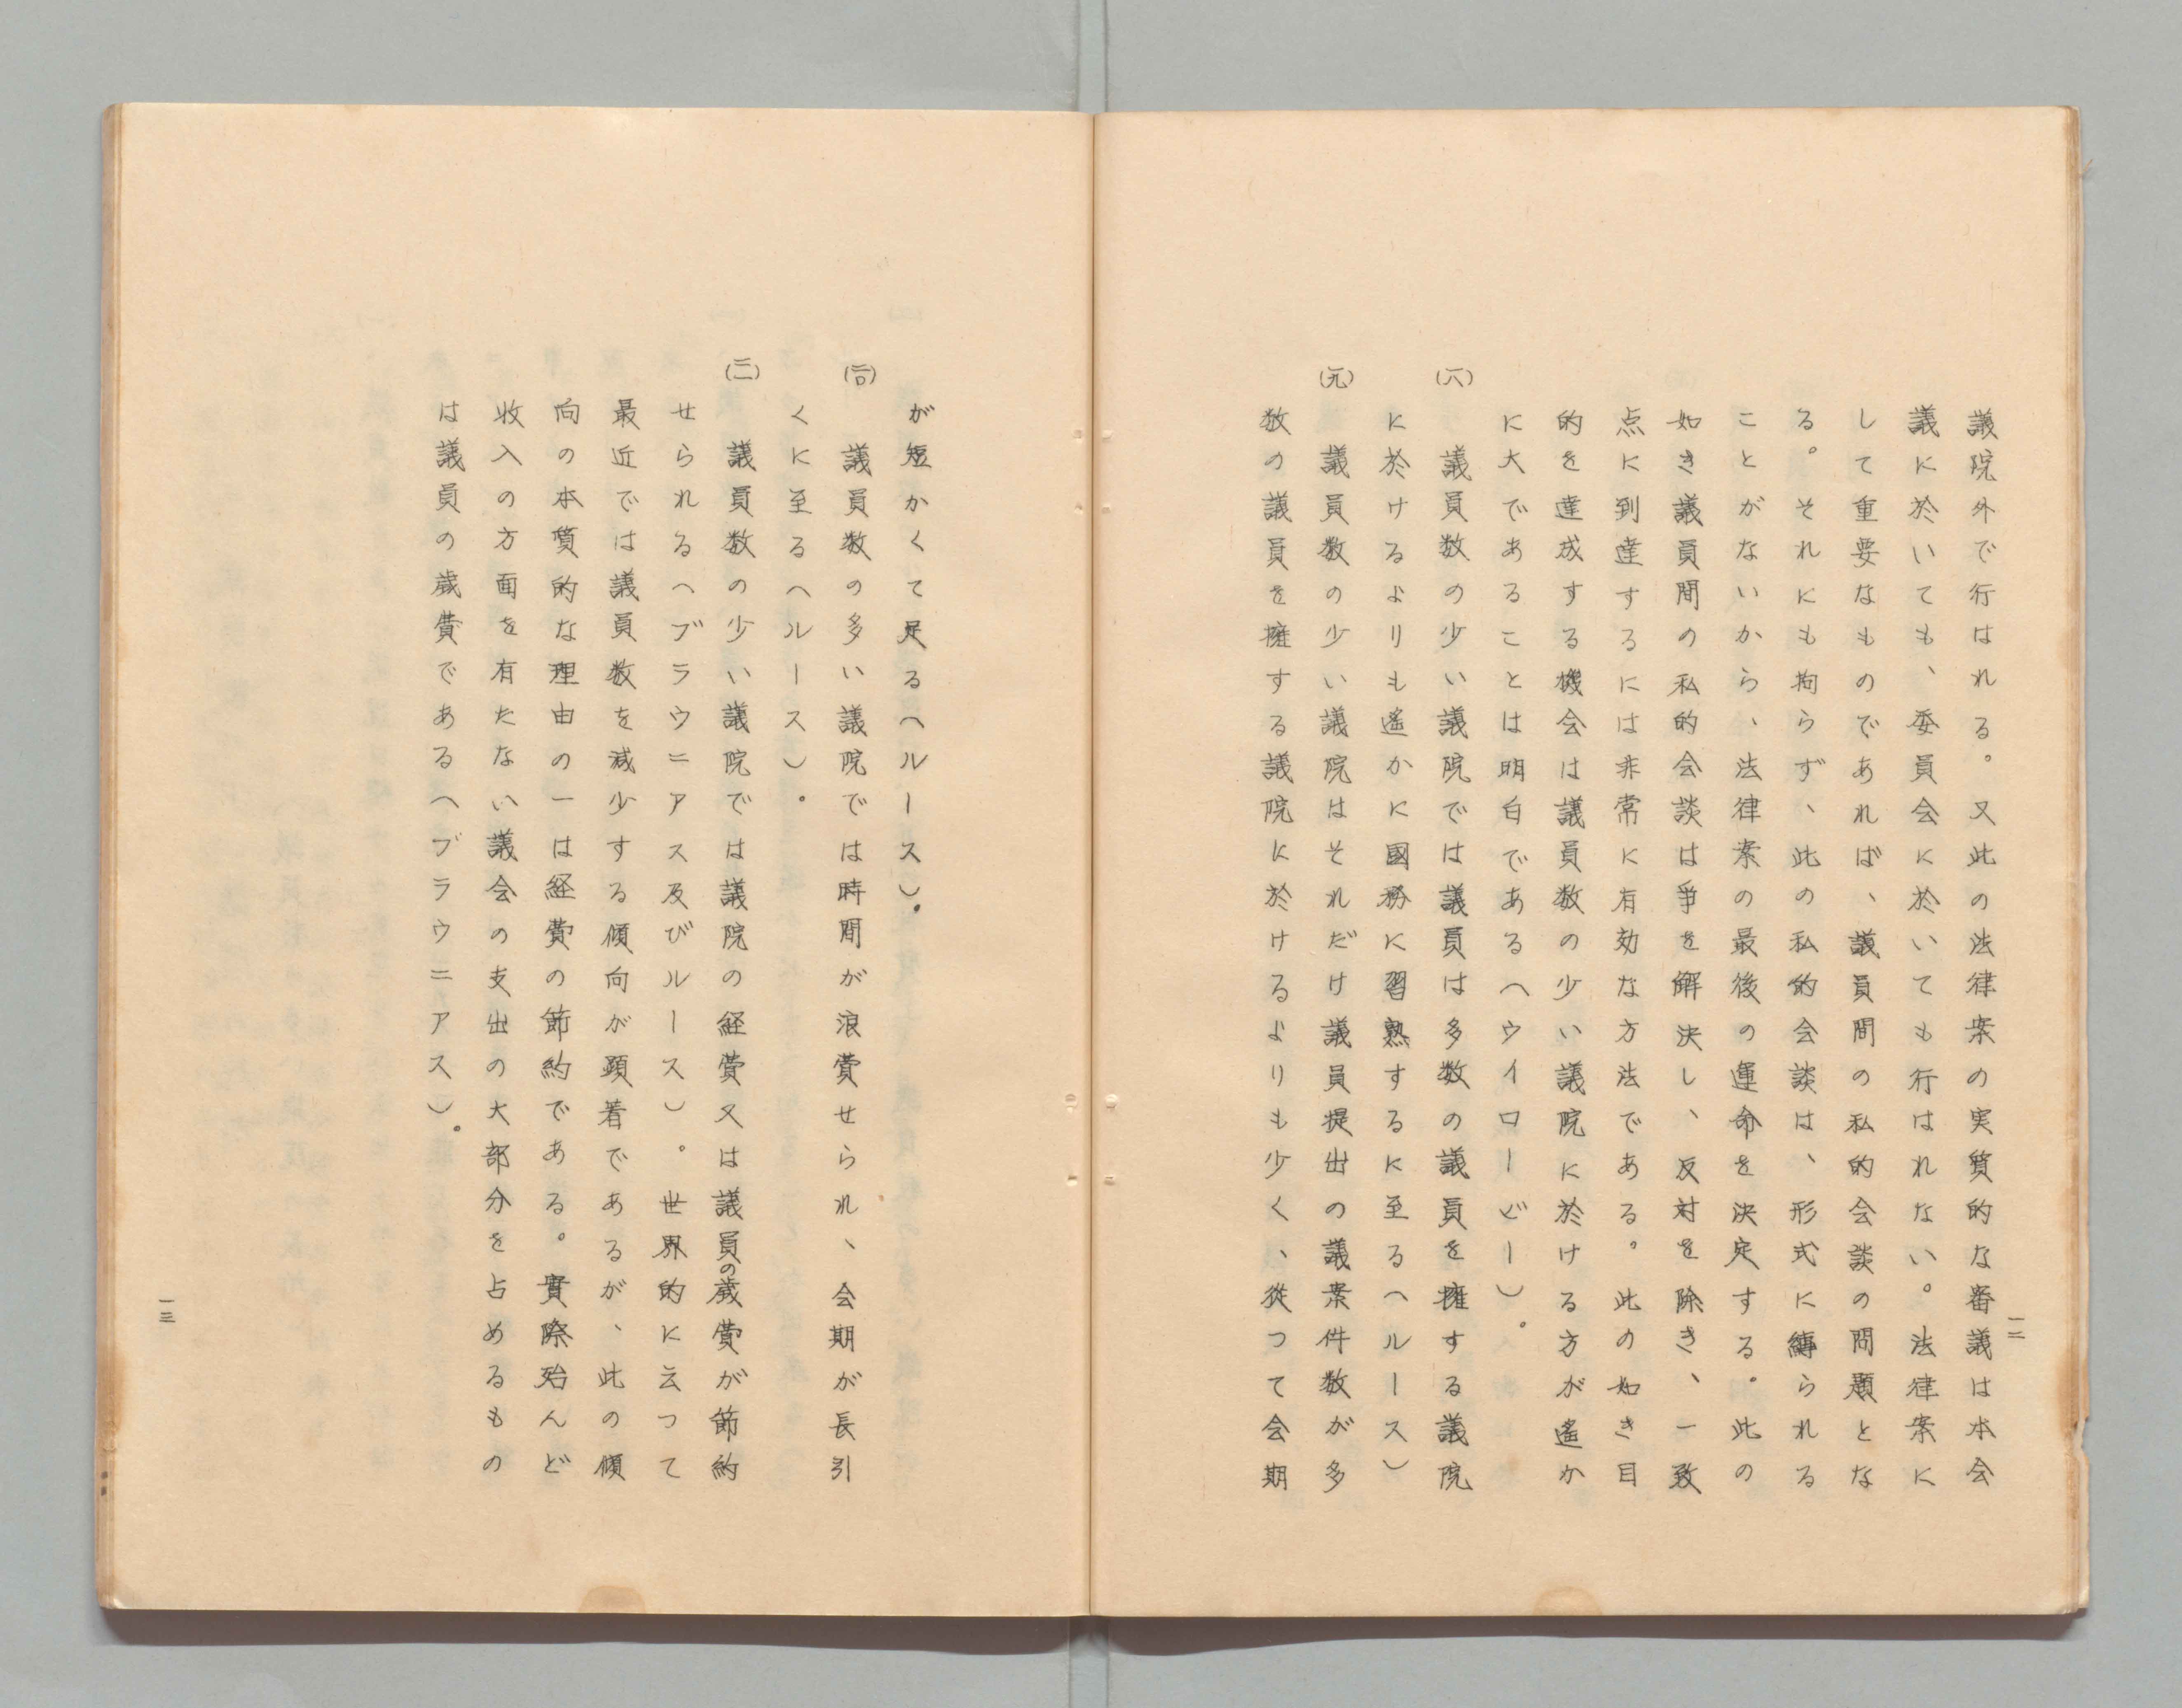 一二
議院外で行はれる。又此の法律案の実質的な審議は本会
議に於いても、委員会に於いても行はれない。法律案に
して重要なものであれば、議員間の私的会談の問題とな
る。それにも拘らず、此の私的会談は、形式に縛られる
ことがないから、法律案の最後の運命を決定する。此の
如き議員間の私的会談は争を解決し、反対を除き、一致
点に到達するには非常に有効な方法である。此の如き目
的を達成する機会は議員数の少い議院に於ける方が遙か
に大であることは明白である(ウイロービー)。
(一八)　議員数の少い議院では議員は多数の議員を擁する議院
に於けるよりも遙かに國務に習熟するに至る(ルース)
(一九)　議員数の少い議院はそれだけ議員提出の議案件数が多
数の議員を擁する議院に於けるよりも少く、從つて会期
が短かくて足る(ルース)。
(二〇)　議員数の多い議院では時間が浪費せられ、会期が長引
くに至る(ルース)。
(二一)　議員数の少い議院では議院の経費又は議員の歳費が節約
せられる(ブラウニアス及びルース)。世界的に云つて
最近では議員数を減少する傾向が顕著であるが、此の傾
向の本質的な理由の一は経費の節約である。實際殆んど
收入の方面を有たない議会の支出の大部分を占めるもの
は議員の歳費である(ブラウニアス)。
一三